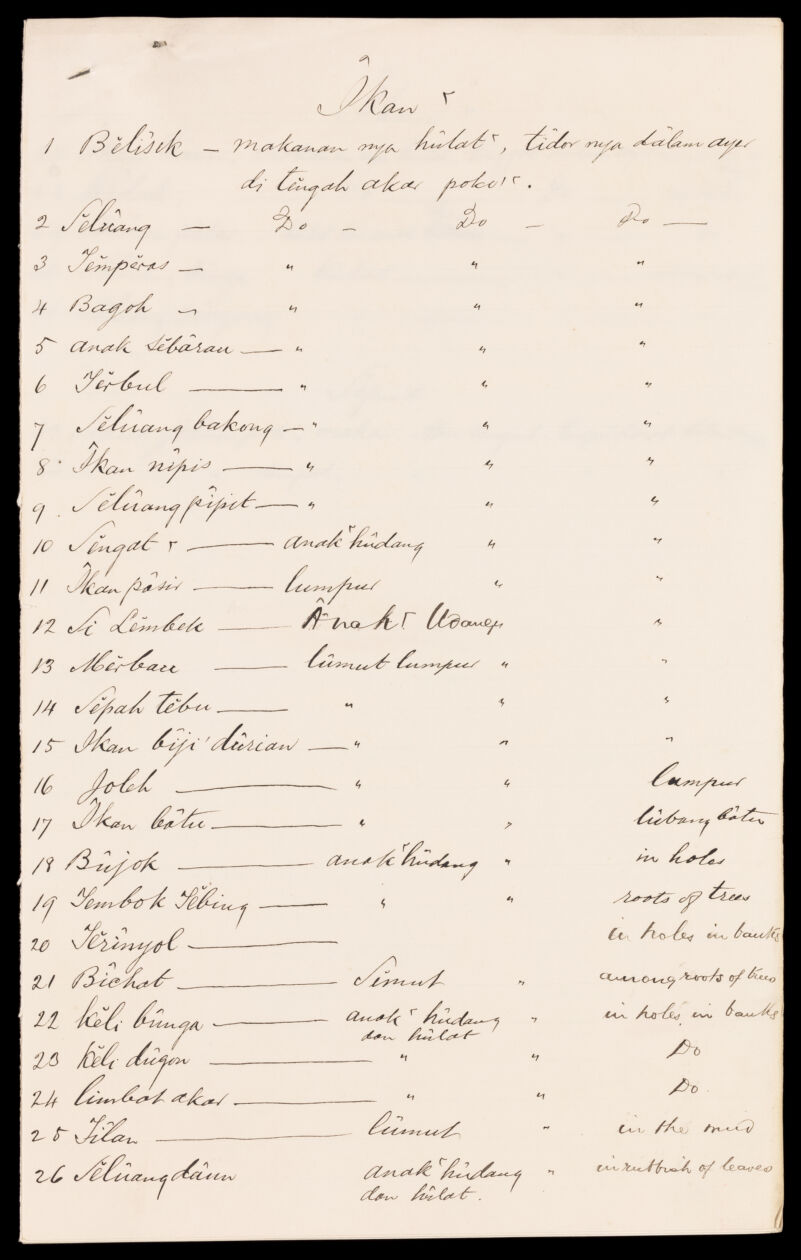 Îkan ٢
1 Bĕlîsek – makanan nya hûlat ٢, tîdor nya dâlam ayer
di tĕngah akar poko' ٢.
2 Sĕlûang — Do – Do – Do —
3 Tĕmpĕras — " " "
4 Bagoh – " " "
5 anak sĕbârau — " " "
6 Tĕrbul — " " "
7 Sĕlûang bakong — " " "
8 Îkan nîpis — " " "
9 Sĕlûang pîpit — " " "
10 Sĕngat ٢ — anak ٢ hûdang " "
11 Îkan pâsir — lumpur " "
12 Si Lĕmbek — Ânak ٢ Udang "
13 Mĕrbau — lûmut lumpur " "
14 Sĕpah tĕbu — " " "
15 Ikan bîji dûrian — " " "
16 Joleh — " " lumpur
17 Îkan bâtu — " " lûbang bâtu
18 Bûjok — anak ٢ hûdang " in holes
19 Tembok Tĕbing — " " roots of trees
20 Tĕrînyol — in holes in banks
21 Bîchat — Sĕmut " among roots of trees
22 kĕli bûnga — anak ٢ hûdang " in holes in banks
dan hûlat
23 kĕli dûgon — " " Do
24 limbat akar — " " Do
25 Tîlan — lûmut " in the mud
26 Sĕlûang dâun anak ٢ hûdang " in rubbish of leaves
dan hûlat.